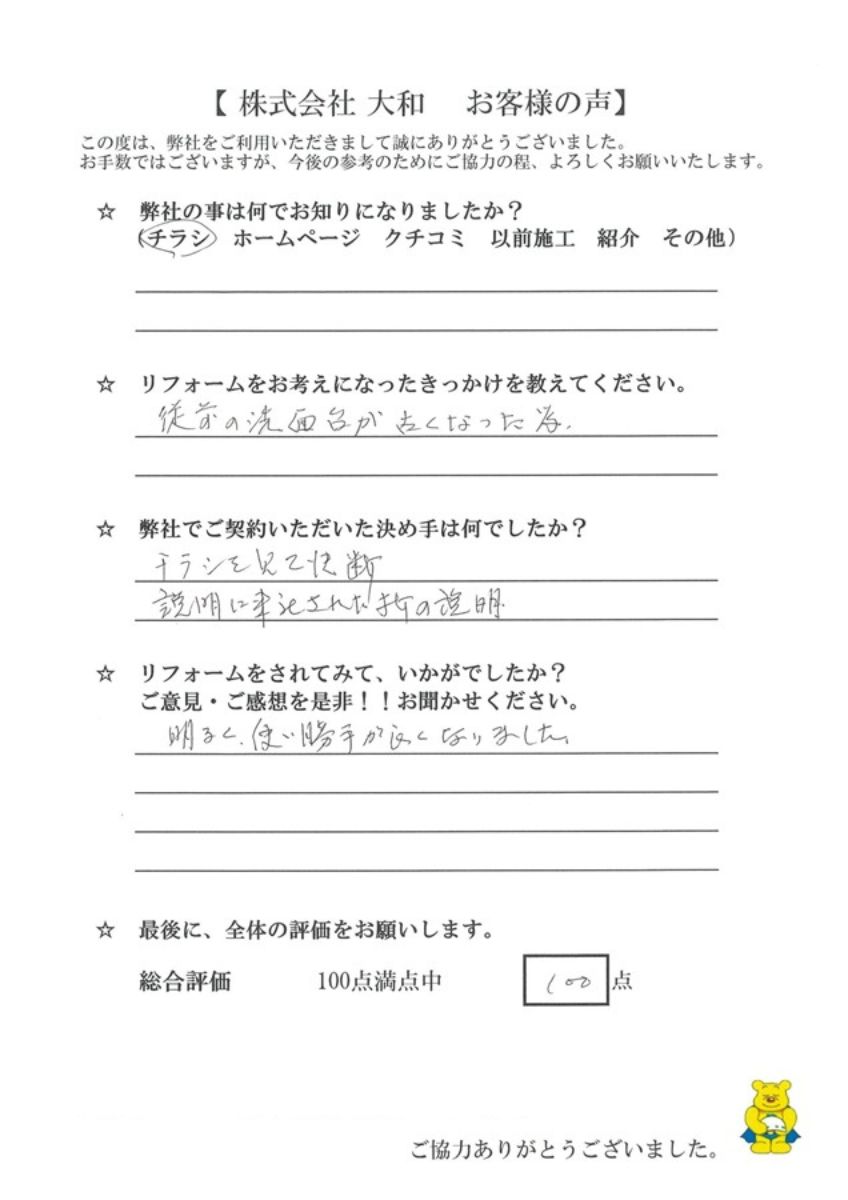 【 株式会社 大和　お客様の声】
この度は、弊社をご利用いただきまして誠にありがとうございました。
お手数ではございますが、今後の参考のためにご協力の程、よろしくお願いいたします。
☆ 弊社の事は何でお知りになりましたか？
（チラシ ホームページ クチコミ 以前施工 紹介 その他）
☆ リフォームをお考えになったきっかけを教えてください。
従前の洗面台が古くなった為.
☆ 弊社でご契約いただいた決め手は何でしたか？
チラシを見て決断
説明に来宅された折の説明
☆ リフォームをされてみて、いかがでしたか？
ご意見・ご感想を是非！！お聞かせください。
明るく、使い勝手が良くなりました。
☆ 最後に、全体の評価をお願いします。
総合評価 100点満点中 100 点
ご協力ありがとうございました。